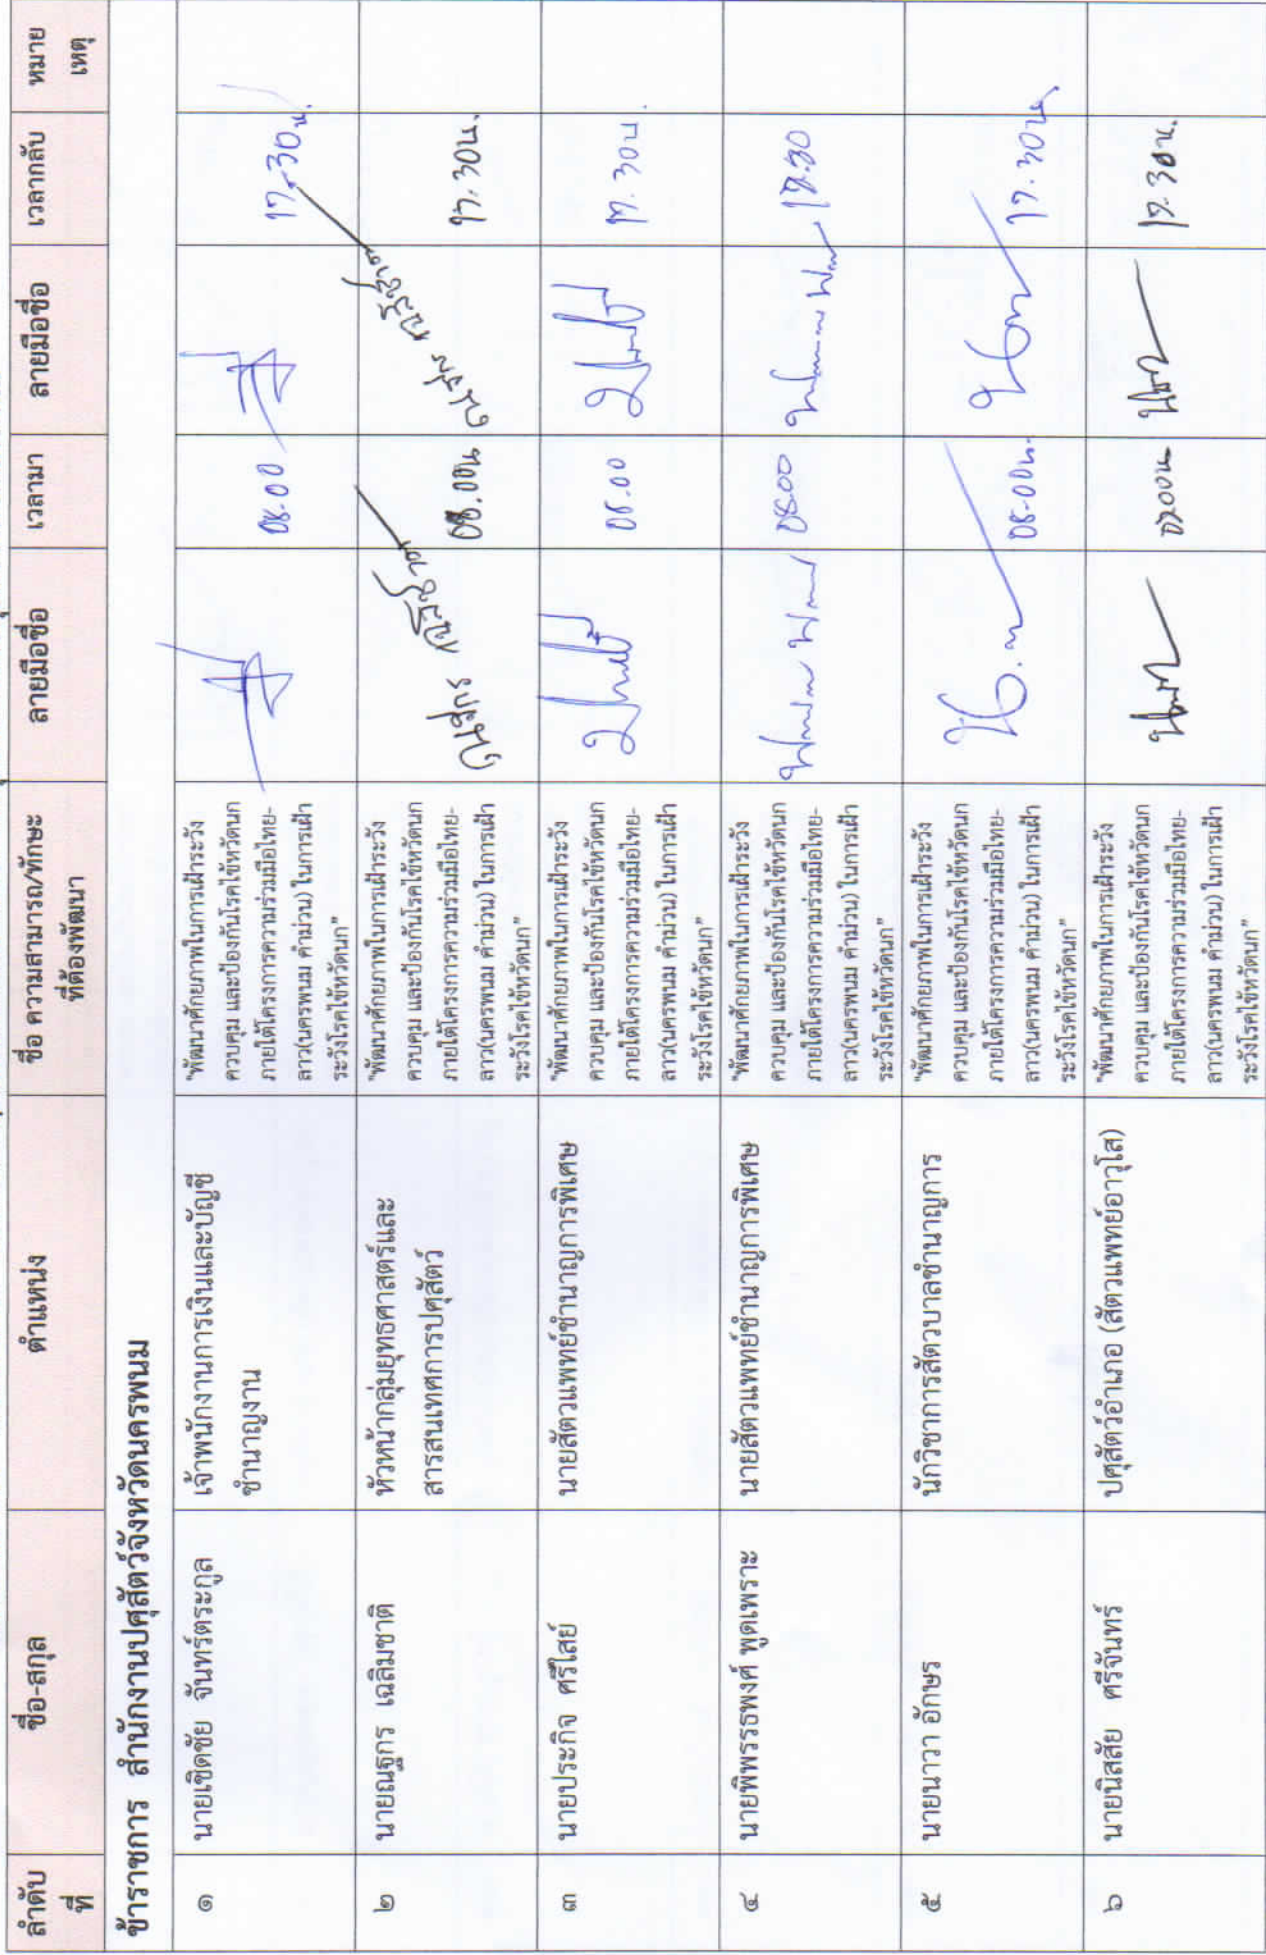 ลำดับ
ที่
ชื่อ-สกุล
ตำแหน่ง
ชื่อ ความสามารถ/ทักษะ
ที่ต้องพัฒนา
ลายมือชื่อ
เวลามา
ลายมือชื่อ
เวลากลับ
หมาย
เหตุ
ข้าราชการ สำนักงานปศุสัตว์จังหวัดนครพนม
๑
นายเชิดชัย จันทร์ตระกูล
เจ้าพนักงานการเงินและบัญชี
ชำนาญงาน
"พัฒนาศักยภาพในการเฝ้าระวัง
ควบคุม และป้องกันโรคไข้หวัดนก
ภายใต้โครงการความร่วมมือไทย-
ลาว(นครพนม คำม่วน) ในการเฝ้า
ระวังโรคไข้หวัดนก"
08.00
17.30น.
๒
นายณฐกร เฉลิมชาติ
หัวหน้ากลุ่มยุทธศาสตร์และ
สารสนเทศการปศุสัตว์
"พัฒนาศักยภาพในการเฝ้าระวัง
ควบคุม และป้องกันโรคไข้หวัดนก
ภายใต้โครงการความร่วมมือไทย-
ลาว(นครพนม คำม่วน) ในการเฝ้า
ระวังโรคไข้หวัดนก"
08.00น
17.30น.
๓
นายประกิจ ศรีไสย์
นายสัตวแพทย์ชำนาญการพิเศษ
"พัฒนาศักยภาพในการเฝ้าระวัง
ควบคุม และป้องกันโรคไข้หวัดนก
ภายใต้โครงการความร่วมมือไทย-
ลาว(นครพนม คำม่วน) ในการเฝ้า
ระวังโรคไข้หวัดนก"
08.00
17.30น.
๔
นายพิพรรธพงศ์ พูดเพราะ
นายสัตวแพทย์ชำนาญการพิเศษ
"พัฒนาศักยภาพในการเฝ้าระวัง
ควบคุม และป้องกันโรคไข้หวัดนก
ภายใต้โครงการความร่วมมือไทย-
ลาว(นครพนม คำม่วน) ในการเฝ้า
ระวังโรคไข้หวัดนก"
0800
17.30
๕
นายนาวา อักษร
นักวิชาการสัตวบาลชำนาญการ
"พัฒนาศักยภาพในการเฝ้าระวัง
ควบคุม และป้องกันโรคไข้หวัดนก
ภายใต้โครงการความร่วมมือไทย-
ลาว(นครพนม คำม่วน) ในการเฝ้า
ระวังโรคไข้หวัดนก"
08.00น.
17.30น.
๖
นายนิสสัย ศรีจันทร์
ปศุสัตว์อำเภอ (สัตวแพทย์อาวุโส)
"พัฒนาศักยภาพในการเฝ้าระวัง
ควบคุม และป้องกันโรคไข้หวัดนก
ภายใต้โครงการความร่วมมือไทย-
ลาว(นครพนม คำม่วน) ในการเฝ้า
ระวังโรคไข้หวัดนก"
17.30น.